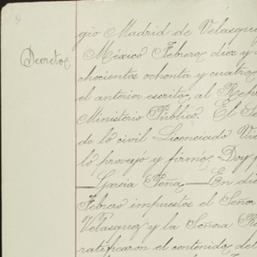 gio Madrid de Velasque
Decreto México Febrero diez y
chocientos ochenta y cuatro
el anterior escrito, al Rep
Ministerio Público. El Se
de lo civil Licenciado Vi
lo proveyo y firmó, Doy f
—Garcia Peña,— En di
Febrero impuestos el Señor
Velasquez y la Señora R
ratificaron el contenido del